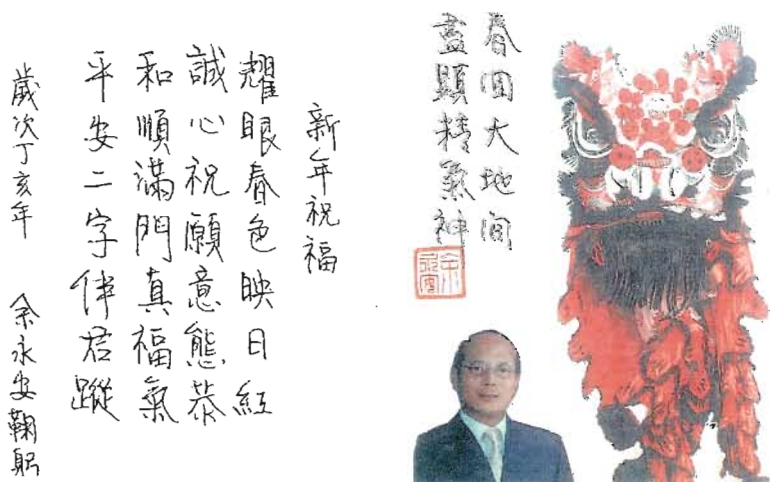 春回大地间
盡顯精氣神
余永安
新年祝福
耀眼春色映日紅
誠心祝願意態恭
和順滿門真福氣
平安二字伴君蹤
歲次丁亥年 余永安鞠躬